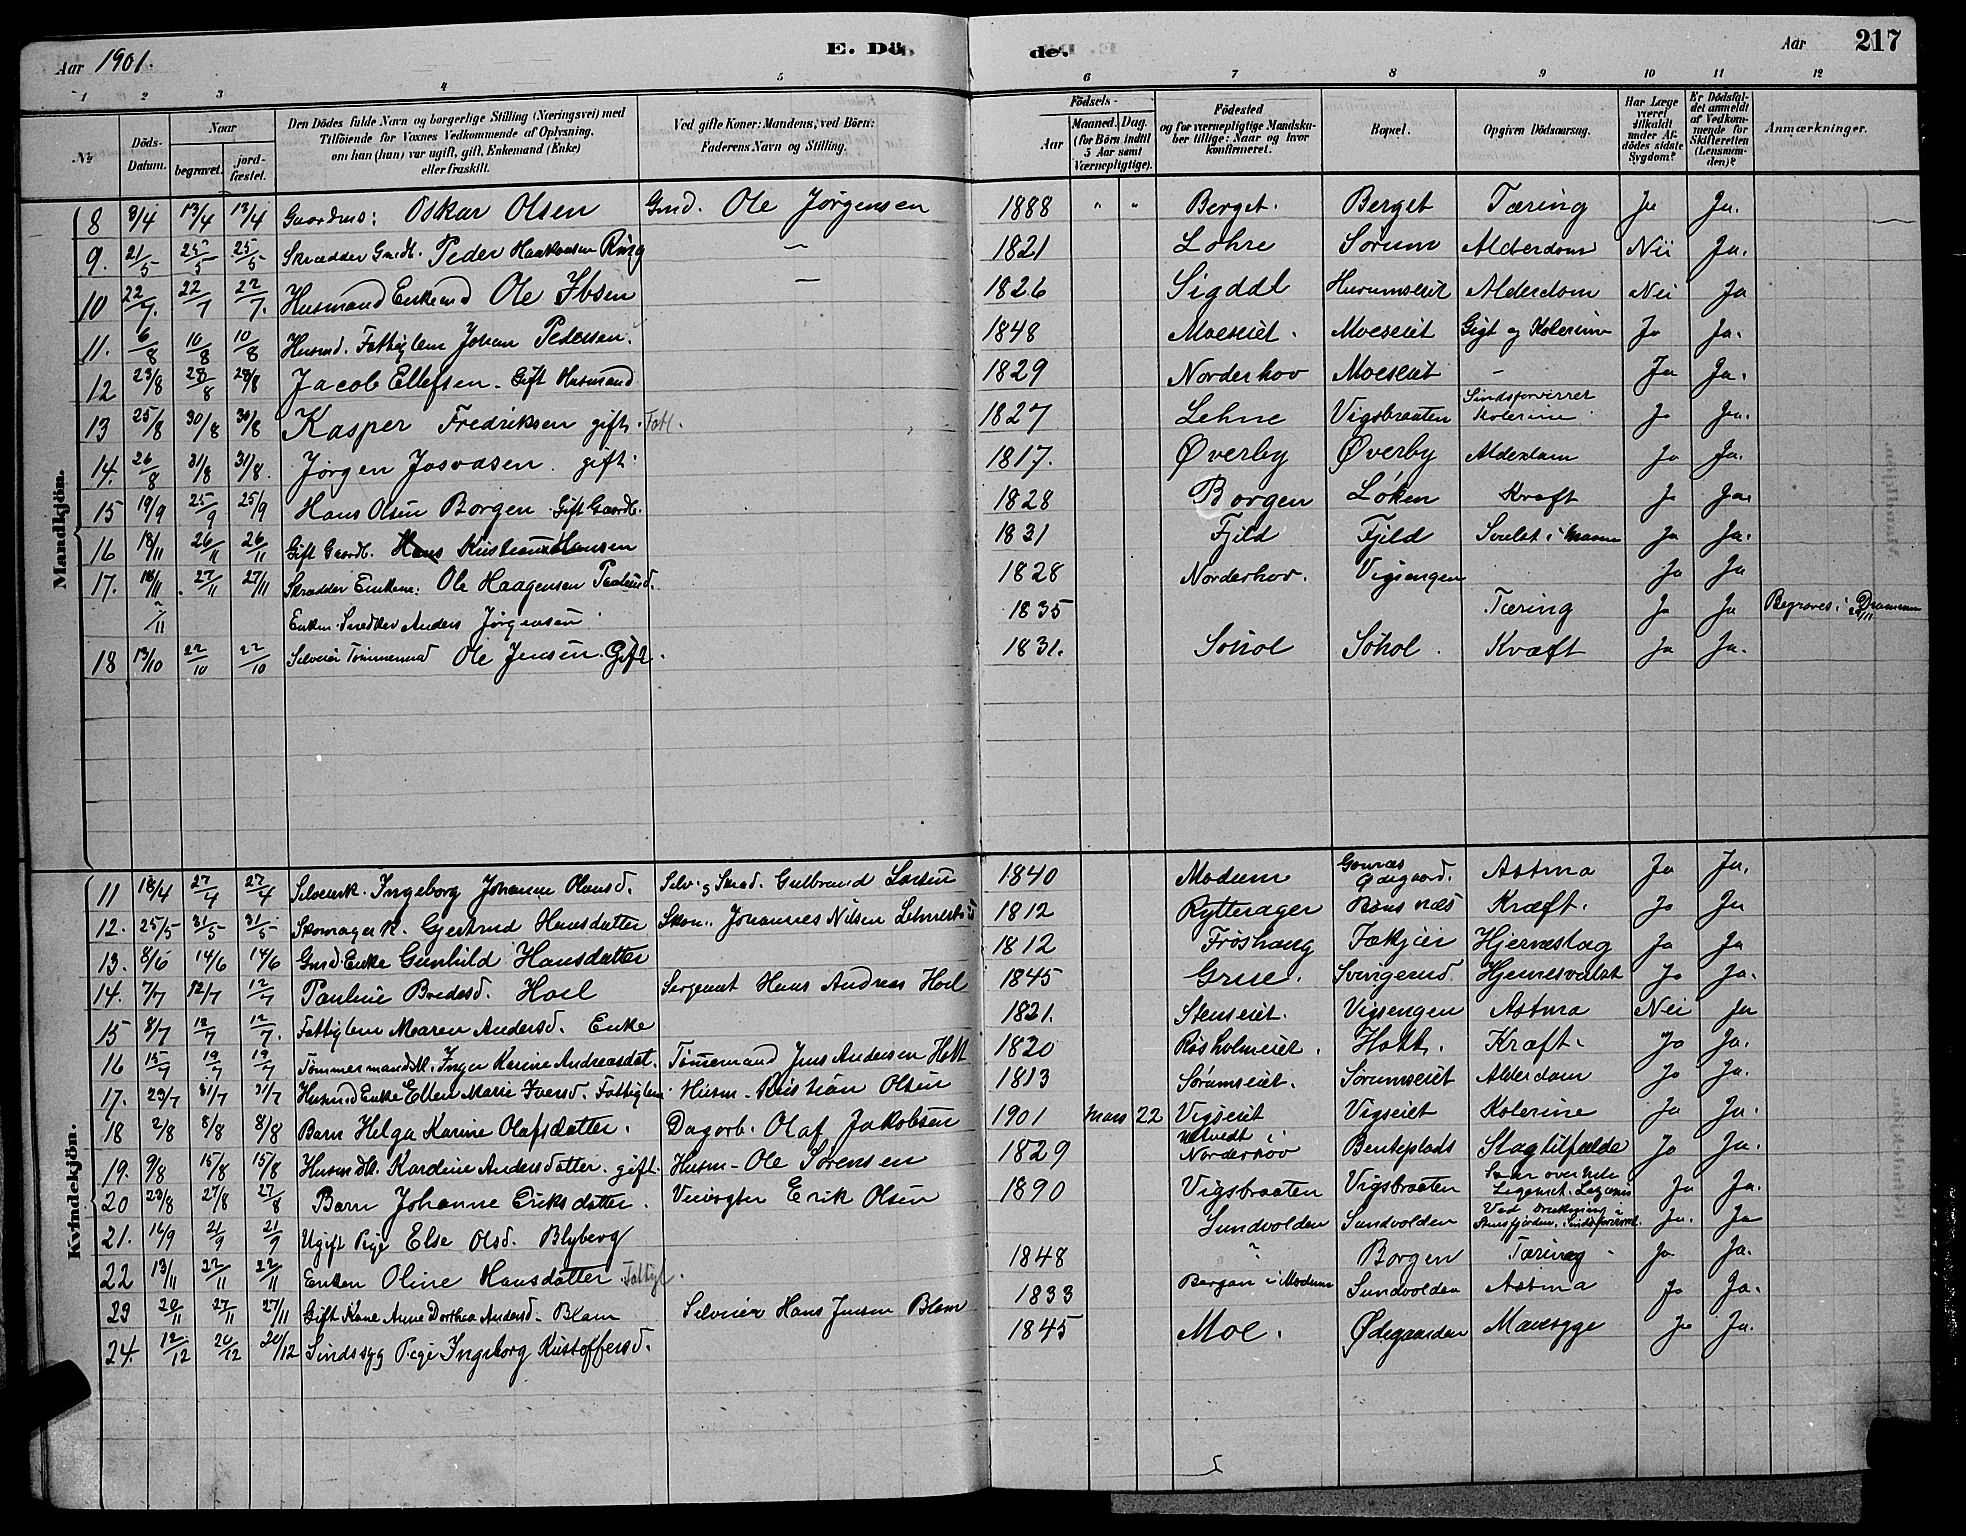 Aar 1901.
E. Dö
de.
Aar
217
1 2 3 4 5 6 7 8 9 10 11 12
No
Döds-Datum.
Naar
begravet.
jord-fæstet.
Den Dödes fulde Navn og borgerlige Stilling (Næringsvei) med
Tilföiende for Voxnes Vedkommende af Oplysning,
om han (hun) var ugift, gift, Enkemand (Enke)
eller fraskilt.
Ved gifte Koner: Mandens, ved Börn:
Faderens Navn og Stilling.
Födsels-
Aar
Maaned. Dag.
(for Börn indtil
5 Aar samt
Værnepligtige).
Födested
og for værnepligtige Mandska-
ber tillige: Naar og hvor
konfirmeret.
Bopæl.
Opgiven Dödsaarsag.
Har Læge
været
tilkaldt
under Af-
dödes sidste
Sygdom?
Er Dödsfal-
det anmeldt
af Vedkom-
mende for
Skifteretten
(Lensman-
den)?
Anmærkninger.
Mandkjön.
8 8/4 13/4 13/4 Gaardms: Oskar Olsen Gmd. Ole Jørgensen 1888 " " Berget. Berget Tæring Ja Ja.
9. 21/5 25/5 25/5 Skrædder Gmdl. Peder Haakonsen Ring — 1821 Lohre Sørum Alderdom Nei Ja.
10 22/7. 22/7 22/7. Husmand Enkemd Ole Ibsen — 1826 Sigddl Hurumseiet Alderdom Nei Ja
11. 6/8 10/8 10/8 Husmd. Fattiglem Johan Pedersen. 1848 Moeseiet. Moeseiet Gigt og Kolerine Ja Ja.
12 23/8 28/8 28/8 Jacob Ellefsen. Gift Husmand 1829 Norderhov Moeseiet - Ja Ja.
13 25/8 30/8 30/8 Kasper Fredriksen gift. Fatl. 1827 Lehne Vigsbraaten Sindsforvirret Kolerine Ja Ja.
14. 26/8 31/8 31/8. Jørgen Josvasen. gift. 1817. Øverby Øverby Alderdom Ja Ja.
15 19/9 25/9 25/9 Hans Olsen Borgen. Gift Gaardb. 1828 Borgen Løken Kræft Ja Ja.
16 18/11 26/11 26/11 Gift Gaardb. Hans Kristian Hansen 1831 Fjeld Fjeld Svulst i Maven Ja Ja.
17. 18/11 27/11 27/11 Skrædder Enkem: Ole Haagensen 1828 Norderhov. Vigsengen Ja Ja
2/11 Enkem. Anders Jørgensen. 1835 Tæring Ja Ja Begraves i Drammen
18 13/10 22/10 22/10 Selveier Tømmermd Ole Jensen. Gift. 1831. Søhol Søhol. Kræft Ja Ja.
Kvindekjön.
11 18/4 27/4 27/4 Selveierk. Ingeborg Johanne Olausd. Selv. Gulbrand Larsen 1840 Modum Gomnæs Ødegaard. Astma Ja Ja.
12. 25/5 31/5 31/5 Skomagerk. Gjertrud Hansdatter Skom. Johannes Nilsen 1812 Rytterager Bønsnæs Kræft. Ja Ja
13. 8/6 14/6 14/6 Gmd. Enke Gunhild Hansdatter 1812 Frøshaug Hjerneslag Ja Ja
14. 7/7 12/7 12/7 Pauline Bredesd. Hoel Sergeant Hans Andreas Hoel 1845 Grue. Svingerud Hjernesvulst Ja Ja.
15 8/7 12/7 12/7. Fattiglem Maren Andersd. Enke 1821. Stenseiet. Vigsengen Astma Nei Ja
16 15/7 19/7 19/7 Tømmermandsk. Inger Karine Andreasdat. Tømmermand Jens Andersen Hatt 1820 Røsholmeiet. Hatt. Kræft. Ja Ja.
17. 23/7 31/7 31/7 Husmd Enke Ellen Marie Iversd. Fattiglem. Husm. Kristian Olsen 1813 Sørumseiet. Sørumseiet Alderdom Ja Ja.
18 2/8 8/8 8/8 Barn Helga Karine Olafsdatter. Dagarb. Olaf Jakobsen 1901 Mars 22 Vigseiet Vigseiet Kolerine Ja Ja.
19. 9/8 15/8 15/8 Husmdk. Kardine Andersdatter. gift. Husm. Ole Sørensen 1829 i Norderhov Benteplads Slagtilfælde Ja Ja.
20 23/8 27/8 27/8 Barn Johanne Eriksdatter. Veivogter Erik Olsen 1890 Vigsbraaten Vigsbraaten Saar over hele Legemet. Ja Ja.
21. 16/9 21/9 21/9 Ugift Pige Else Olsd. Blyberg Sundvolden Sundvolden Ved Drukning Ja. Ja
22 13/11 22/11 22/11 Enken Oline Hansdatter Fattigl. 1848 " Borgen Tæring. Ja Ja.
23 20/11 27/11 27/11 Gift Kone Anne Dorthea Andersd. Blom Selveier Hans Jensen Blom 1833 Bergan i Modum Sundvolden Astma Ja Ja.
24. 12/12 20/12 20/12 Sindssyg Pige Ingeborg Kristoffersd. 1845 Moe. Ødegaarden Mavesyge Ja Ja.